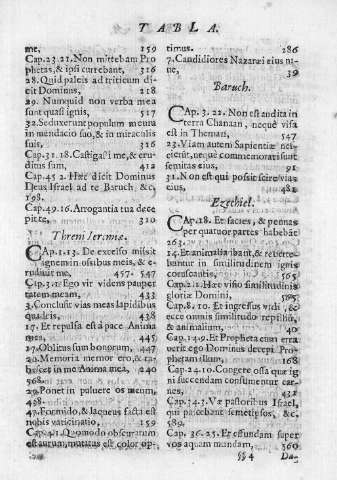 TABLA.
me, 159
Cap.23.21.Non mittebam Pro
phetas,& ipsi currebant, 316
28. Quid paleis ad triticum di-
cit Dominus, 218
29. Nunquid non verba mea
sunt quasi ignis, 517
32.Seduxerunt populum meum
in mendacio suo,& in miraculis
suis, 316
Cap.31.18.Castigasi me,& eru-
ditus sum, 412
Cap.45 2. Hæc dicit Dominus
Deus Israel ad te Baruch, &c,
198.
Cap.49.16.Arrogantia tua dece
pit te, 310
Threni Ieremiæ.
CAp.1.13. De excelso misit
ignem in ossibus meis,& e-
rudiuit me, 457. 547
Cap.3.1. Ego vir videns pauper
tatem meam, 433
3.Conclusit vias meas lapidibus
quadris, 438
17.Et repulsa est à pace Anima
mea, 445
27.Oblitus sum bonorum, 447
20.Memoria memor ero,& ta-
bescet in me Anima mea, 240
568.
29.Ponet in puluere os meum,
498.
47.Formido,& laqueus facta est
nobis vaticinatio, 159
Cap.4.1. Quomodo obscuratum
est aurum,mutatus est color op-
timus. 286
7.Candidiores Nazaræi eius ni-
ue, 39
Baruch.
CAp. 3. 22. Non est audita in
terra Chanaan, neque visa
est in Theman, 547
23.Viam autem Sapientiæ nes-
cierũt,neque commemorati sunt
semitas eius, 91
31.Non est qui possit scire vias
eius, 481
Ezechiel.
CAp.18. Et facies, & pennas
per quatuor partes habebãt
263.
14.Et animalia ibant,& reuerte-
bantur in similitudinem ignis
coruscantis, 565
Cap.2.1. Hæc visio similitudinis
gloriæ Domini, 595
Cap.8.10. Et ingressus vidi, &
ecce omnis similitudo reptiliũ,
& animalium, 40
Cap.14.9.Et Propheta cum erra
uerit ego Dominus decepi Pro-
phetam illum, 168
Cap.24.10.Congere ossa quæ ig
ni succendam consumentur car-
nes, 432
Cap.34.3.Væ pastoribus Israel,
qui pascebant semetipsos, &c,
589.
Cap. 36.25.Et effundam super
vos aquam mundam, 560
§§ 4 Da-